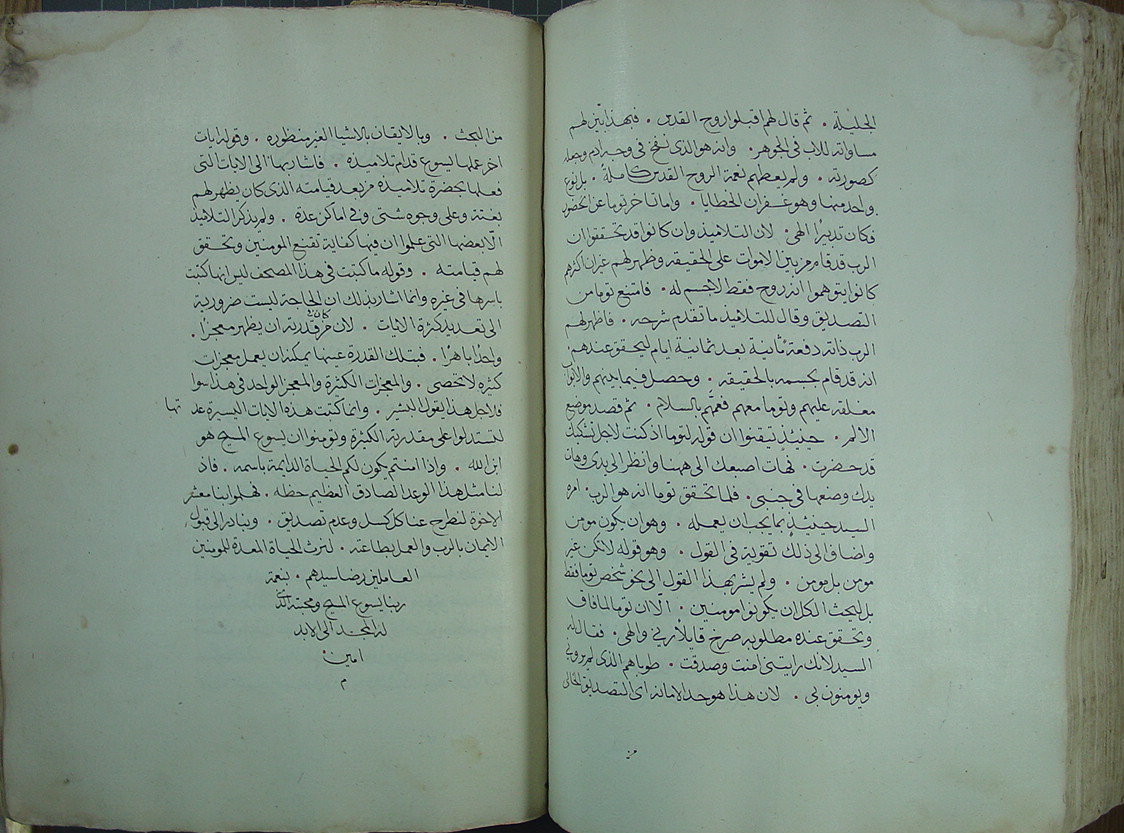 الجليلة . ثم قال لهم اقبلوا روح القدس . فبهذا بين لهم
مساواته للاب في الجوهر . وانه هو الذي نفخ في وجه ادم وجعله
كصورته . ولم يعطهم نعمة الروح القدس كاملة . بل نوع
واحد منها وهو غفران الخطايا . واما تاخر توما عن الحضور
فكان تدبيرًا الهي . لان التلاميذ وان كانوا قد تحققوا ان
الرب قد قام من بين الاموات على الحقيقه وظهر لهم غيران اكثرهم
كانوا يتوهموا انه روح فقط لا جسم له . فامتنع توما من
التصديق وقال للتلاميذ ما تقدم شرحه . فاظهر لهم
الرب ذاته دفعة ثانية بعد ثمانية ايام ليحقق عندهم
انه قد قام بجسمه بالحقيقه . وحصل فيما بينهم والابواب
مغلقه عليهم وتوما معهم فعمهم بالسلام . ثم قصد موضع
الالم . حينيذٍ تيقنوا ان قوله لتوما اذ كنت لاجل تشكيك
قد حضرت . فهات اصبعك الى ههنا وانظر الى يدي وهات
يدك وضعها في جنبي . فلما تحقق توما انه هو الرب . امره
السيد حينيذٍ بما يجب ان يعمله . وهو ان يكون مومن
واضاف الى ذلك تقوية في القول . وهو قوله لا تكن غير
مومن بل مومن . ولم يشر بهذا القول الى نحو شخص توما فقط
بل ليحث الكل ان يكونوا مومنين . الا ان توما لما فاق
وتحقق عنده مطلوبه صرخ قايلًا ربي والهي . فقال له
السيد لانك رايتني امنت وصدقت . طوباهم الذي لم يروني
ويومنون بي . لان هذا هو حد الامانه اي التصديق الخالي
من
من البحث . وبالايقان بالاشيا الغير منظوره . وقوله ايات
اخر عملها يسوع قدام تلاميذه . فاشار بها الى الايات التي
فعلها بحضرة تلاميذه من بعد قيامته الذي كان يظهر لهم
بغتة وعلى وجوه شتى وفي اماكن عدة . ولم يذكر التلاميذ
الا بعضها التي علموا ان فيها كفاية تقنع المومنين وتحقق
لهم قيامته . وقوله ما كتبت في هذا المصحف ليس انها كتبت
باسرها في غيره وانما اشار بذلك ان الحاجة ليست ضرورية
الى تعديد كثرة الايات . لان من كانت قدرته ان يظهر معجزًا .
واحدًا باهرًا . فبتلك القدرة عينها يمكنه ان يعمل معجزات
كثيره لا تحصى . والمعجزات الكثيرة والمعجز الواحد في هذا سوا
فلاجل هذا يقول البشير . وانما كتبت هذه الايات اليسيرة عدتها
لتستدلوا على مقدرته الكثيرة وتومنوا ان يسوع المسيح هو
ابن الله . واذا امنتم يكون لكم الحياة الدايمة باسمه . فاذ
لنا مثل هذا الوعد الصادق العظيم حظه . فهلموا بنا معشر
الاخوة لنطرح عنا كل كسل وعدم تصديق . ونبادر الى قبول
الايمان بالرب والعمل بطاعته . لنرث الحياة المعدة للمومنين
العاملين رضا سيدهم . بنعمة
ربنا يسوع المسيح ومحبته الذي
له المجد الى الابد
امين .
م